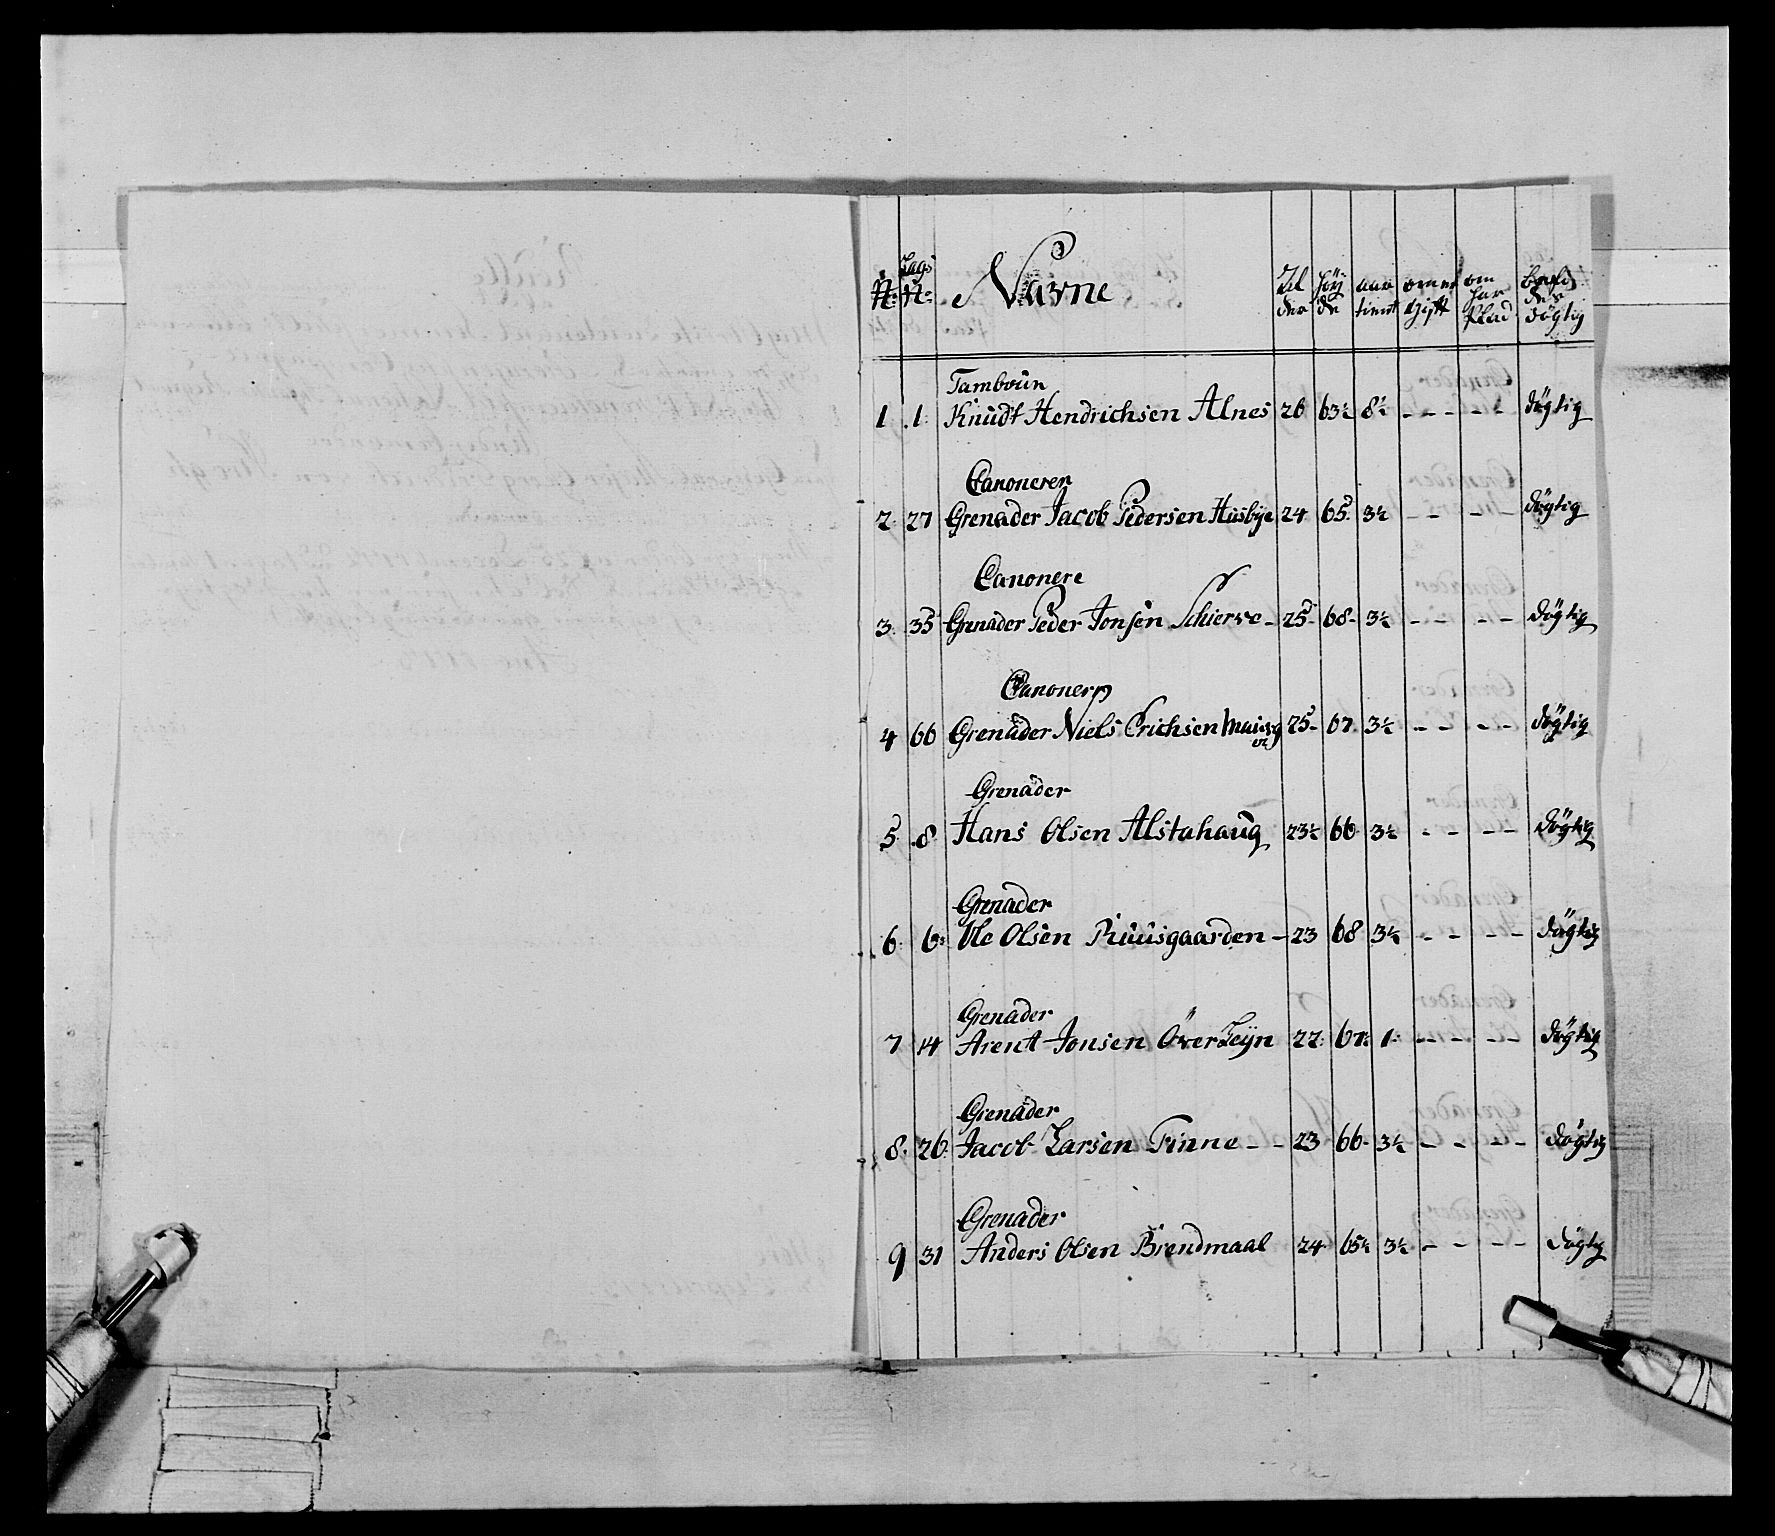 N: Lags N: Navne Al der Höy de aar tient om er Gift om har Plad Dögtig
Tambour
1 1 Knudt Hendrichsen Alnes 26 63½ 8½ - - - - - Dögtig
Canonerer
2 27 Grenader Jacob Pedersen Husbye 24 65 3½ - - - Dögtig
Canonere
3 35 Grenader Peder Jonsen Schierve - 25 - 68 - 3½ - - - - Dögtig
Canoner
4 66 Grenader Niels Erichsen 25 - 67 3½ - - - - Dögtig
Grenader
5 8 Hans Olsen Alstahaug 23½ 66 3½ - - - - Dögtig
Grenader
6 6 Ole Olsen Ruusgaarden - 23 68 3½ - - - - Dögtig
Grenader
7 14 Arent Jonsen ÖverLeyn 22 67 1 - - - - Dögtig
Grenader
8 26 Jacob Larsen Finne - - 23 66 - 3½ - - - - Dögtig
Grenader
9 31 Anders Olsen Brendmaal 24 65½ 3½ - - - - Dögtig